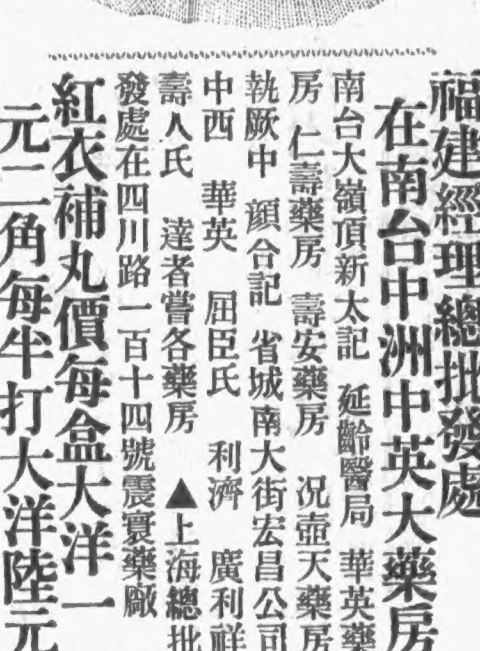 福建經理總批發處
在南台中洲中英大藥房
南台大嶺頂新太記 延齡醫局 華英藥
房 仁壽藥房 壽安藥房 況壺天藥房
執厥中 顏合記 省城南大街宏昌公司
中西 華英 屈臣氏 利濟 廣利祥
壽人氏 達者嘗各藥房 ▲上海總批
發處在四川路一百十四號震寰藥廠
紅衣補丸價每盒大洋一
元二角每半打大洋陸元